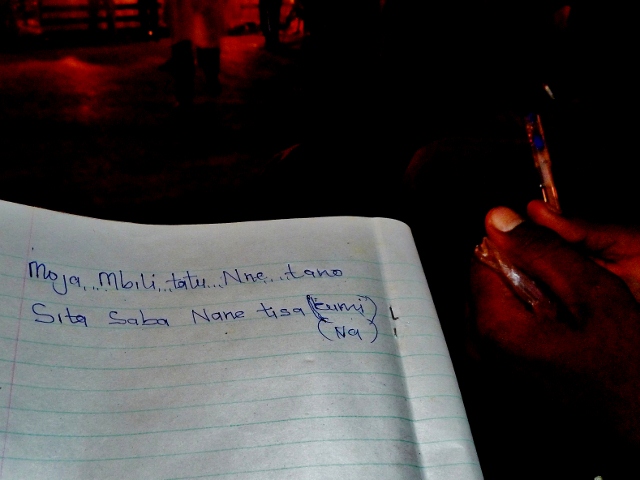 Moja...Mbili...tatu...Nne...tano
Sita Saba Nane tisa (kumi)
(Na)